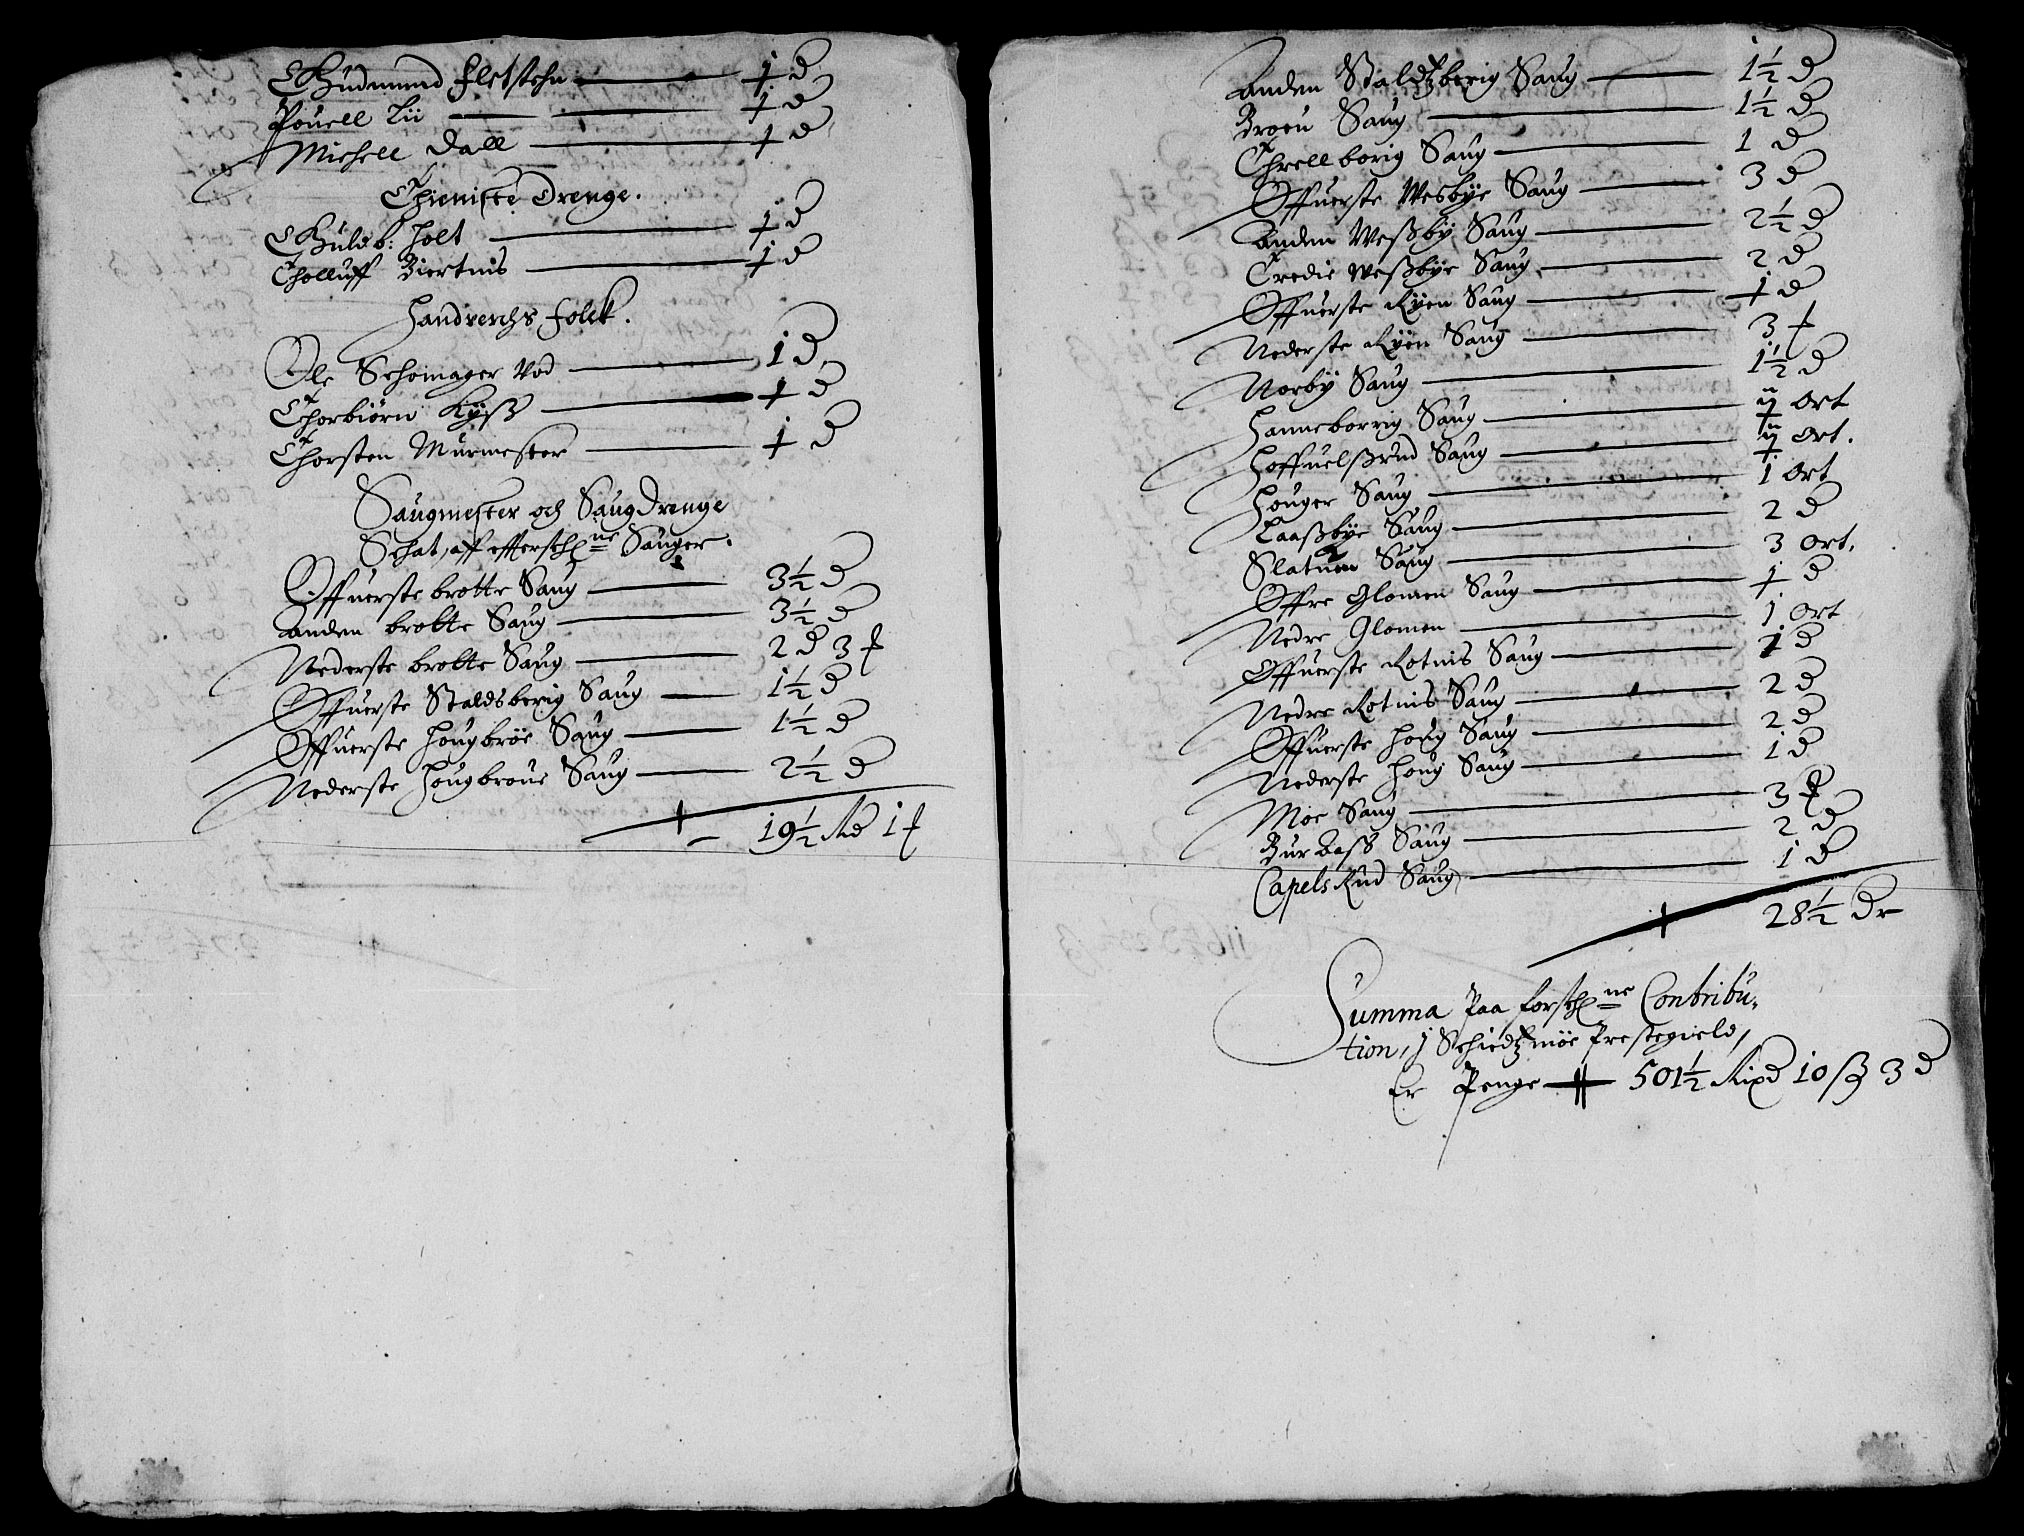 Gudmund Fletstehn — j d
Pouell Lii — j d
Michell Dall — j d
Thieniste Drenge.
Guldb: Holt — j d
Tholluff Biertnis — j d
Handverchs Folck.
Ole Schomager Vod — 1 d
Thorbiørn Kyß — j d
Thorsten Murmester — j d
Saugmester och Saugdrenge
Schat, aff effterschne Sauger.
Offuerste brotte Saug — 3½ d
Anden brotte Saug — 3½ d
Nederste brotte Saug — 2 d 3 f
Offuerste Staldsberig Saug — 1½ d
Offuerste Hougbroe Saug — 1½ d
Nederste Hougbroue Saug — 2½ d
19½ Rd 1 f
Anden Staldtzberig Saug — 1½ d
Broeu Saug — 1½ d
Threllborig Saug — 1 d
Offuerste Wesbye Saug — 3 d
Anden Weßby Saug — 2½ d
Tredie Weßbye Saug — 2 d
Offuerste Ryen Saug — j d
Nederste Ryen Saug — 3 f
Norby Saug — 1½ d
Hanneborrig Saug — ij Ort
Hoffuelßrud Saug — ij Ort.
Houger Saug — 1 Ort
Laaßbye Saug — 2 d
Slatum Saug — 3 Ort.
Offre Glomen Saug — j d
Nedre Glomen — 1 Ort
Offuerste Rotnis Saug — 1 d
Nedre Rotnis Saug — 2 d
Offuerste Houg Saug — 2 d
Nederste Houg Saug — 1 d
Moe Saug — 3 f
Buraass Saug — 2 d
Capelsrud Saug — 1 d
28½ Dr
Summa Paa forschne Contribu-
tion, j Schiedtzmoe Prestegield,
Er Penge — 501½ Rixd 10 ß 3 d